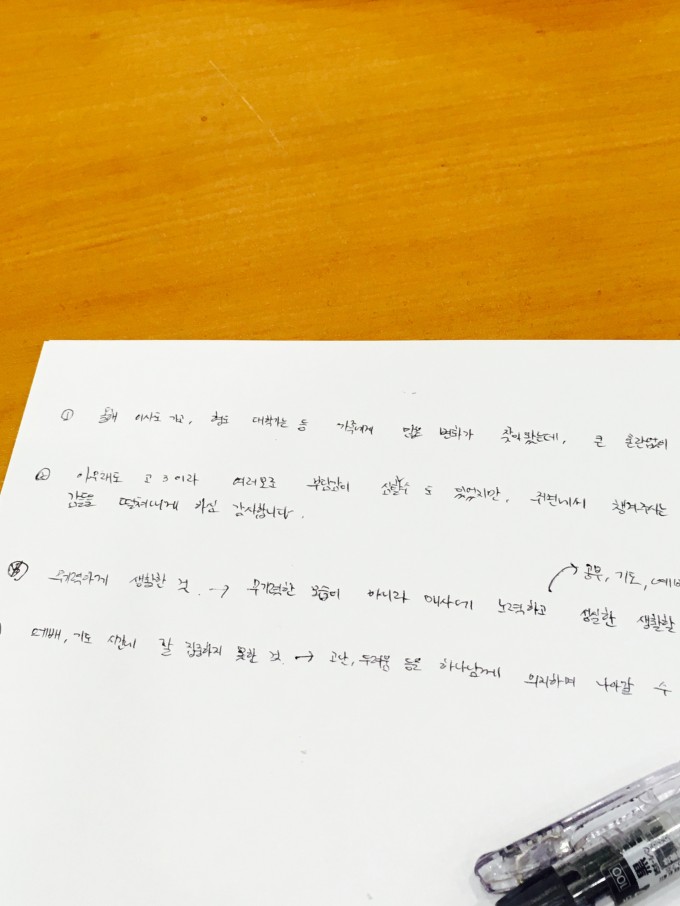 ① 올해 이사도 가고, 형도 대학가는 등 가족에게 많은 변화가 찾아왔는데, 큰 혼란없이
② 아무래도 고3이라 여러모로 부담감이 도 있었지만, 주변에서 챙겨주시는
감사합니다.
무기력하게 생활한 것. → 무기력한 모습이 아니라 매사에 노력하고 성실한 생활할
공부, 기도, 예배
예배, 기도 시간에 잘 집중하지 못한 것. → 고난, 두려움 등을 하나님께 의지하며 나아갈 수
100